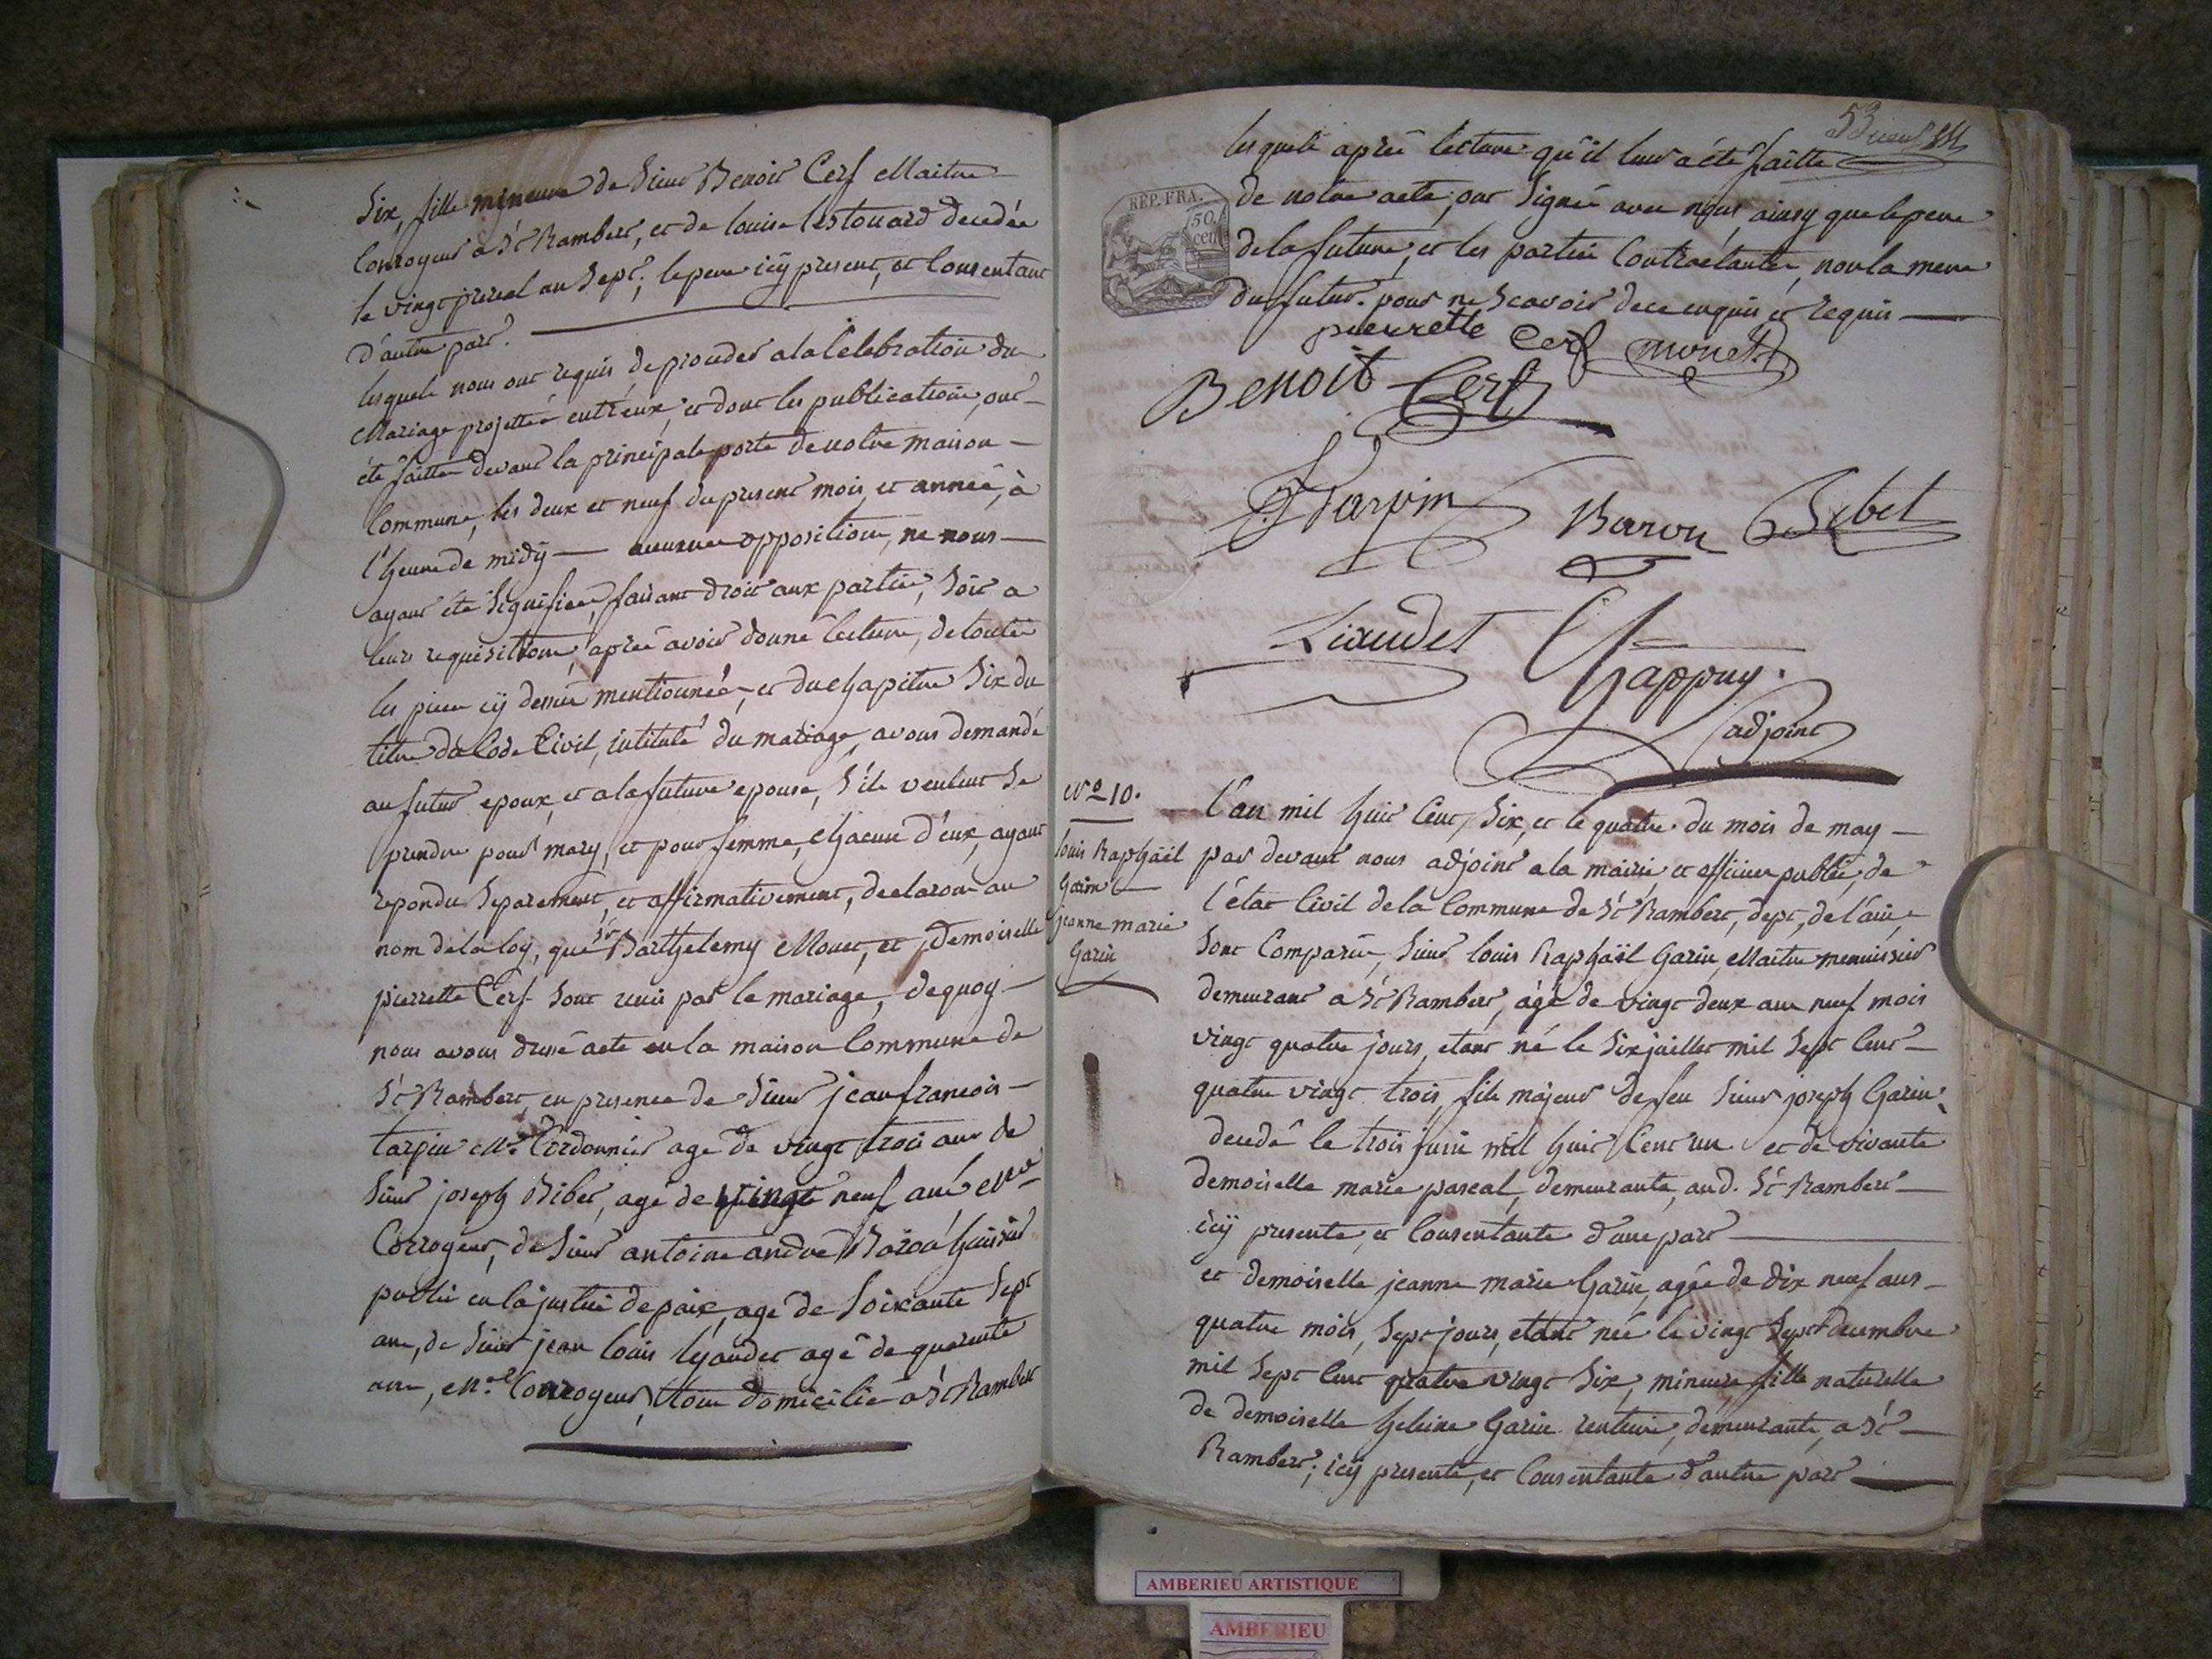 Six, fille mineure de Sieur Benoit Cerf Maitre
Conroyeur a St Rambert, et de louise lestouard decedée
le vingt prereal an Sept; le pere icÿ present, et Consentant
d'autre part.
lesquels nous ont requis de proceder a la Celebration du
Mariage projetté entreux, et dont les publications, ont
été faittes devant la principale porte de notre maison
Commune, les deux et neuf du present mois, et année, à
l'heure de midÿ aucune opposition, ne nous
ayant été Signifiée, faisant droit aux parties, Soit a
leurs requisitions, après avoir donné lecture, de toutes
les pieces cÿ dessus mentionnées, et du chapitre Six du
titre du Code Civil, intitulé du mariage, avons demandé
au futur epoux, et a la future epouse, S'ils veulent Se
prendre pour mary, et pour femme, chacun d'eux, ayant
repondu Separement, et affirmativement, declarons au
nom de la loy, que Sr Barthelemy Monet, et Demoiselle
pierrette Cerf Sont unis par le mariage, de quoy
nous avons dressé acte en la maison Commune de
St Rambert, en presence de Sieur jean francois
tarpin Me Cordonnier age de vingt trois ans de
Sieur joseph Bibet, agé de vingt neuf ans, Me
Corroyeur, de Sieur antoine andre Baron huissier
public en la justice de paix, agé de Soixante Sept
ans, de Sieur jean louis lyaudet agé de quarente
ans, Me Conroyeur, tous domiciliés a St Rambert
53 neuf
lesquels après lecture qu'il leur a été faitte
de notre acte, ont Signés avec nous, ainsy que le pere
de la future, et les parties Contractantes, non la mere
du futur. pour ne Scavoir de ce enquis et requis
REP. FRA.
50 cen
pierrette Cerf monet
Benoit Cerf
Tarpin Baron Bibet
Liaudet Chappuy.
adjoint
No 10.
louis Raphaël
Garin
jeanne marie
Garin
l'an mil huit Cent, Six, et le quatre du mois de may
par devant nous adjoint a la mairie, et officier public, de
l'état Civil de la Commune de St Rambert, dept, de l'ain,
Sont Comparus, Sieur louis Raphaël Garin, Maitre menuisier
demeurant a St Rambert, âgé de vingt deux ans neuf mois
vingt quatre jours, etant né le Six juillet mil Sept Cent
quatre vingt trois, fils majeur de feu Sieur joseph Garin
decedé le trois juin mil huit Cent un et de vivante
demoiselle marie pascal, demeurante, aud. St Rambert
icÿ presente, et Consentante d'une part
et demoiselle jeanne marie Garin, agée de dix neuf ans
quatre mois, Sept jours, etant née le vingt Sept decembre
mil Sept Cent quatre vingt Six, mineure fille naturelle
de demoiselle heleine Garin rentiere, demeurante, a St
Rambert; icÿ presente, et Consentante d'autre part
AMBERIEU ARTISTIQUE
AMBERIEU